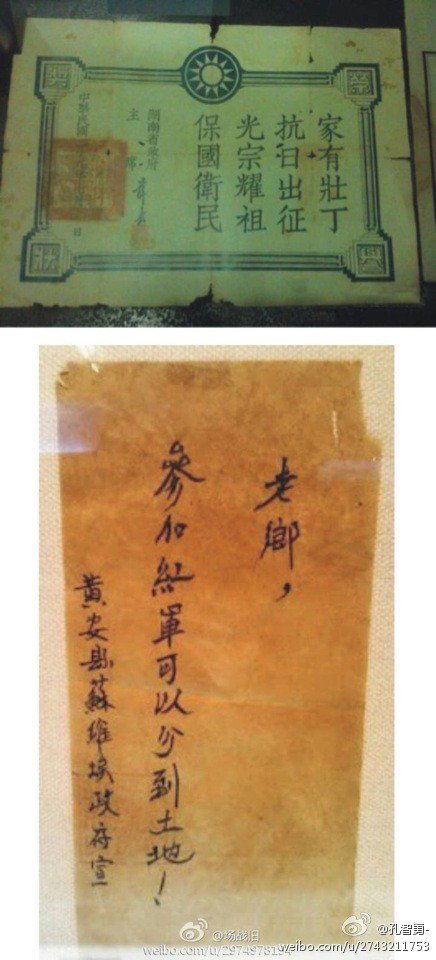 家有壯丁
抗日出征
光宗耀祖
保國衛民
湖南省政府
主席
中華民國
日
老鄉，
參加紅軍可以分到土地！
黃安县蘇維埃政府宣
@场战旧
weibo.com/u/2974978194
@孔智勇-
weibo.com/u/2743211753